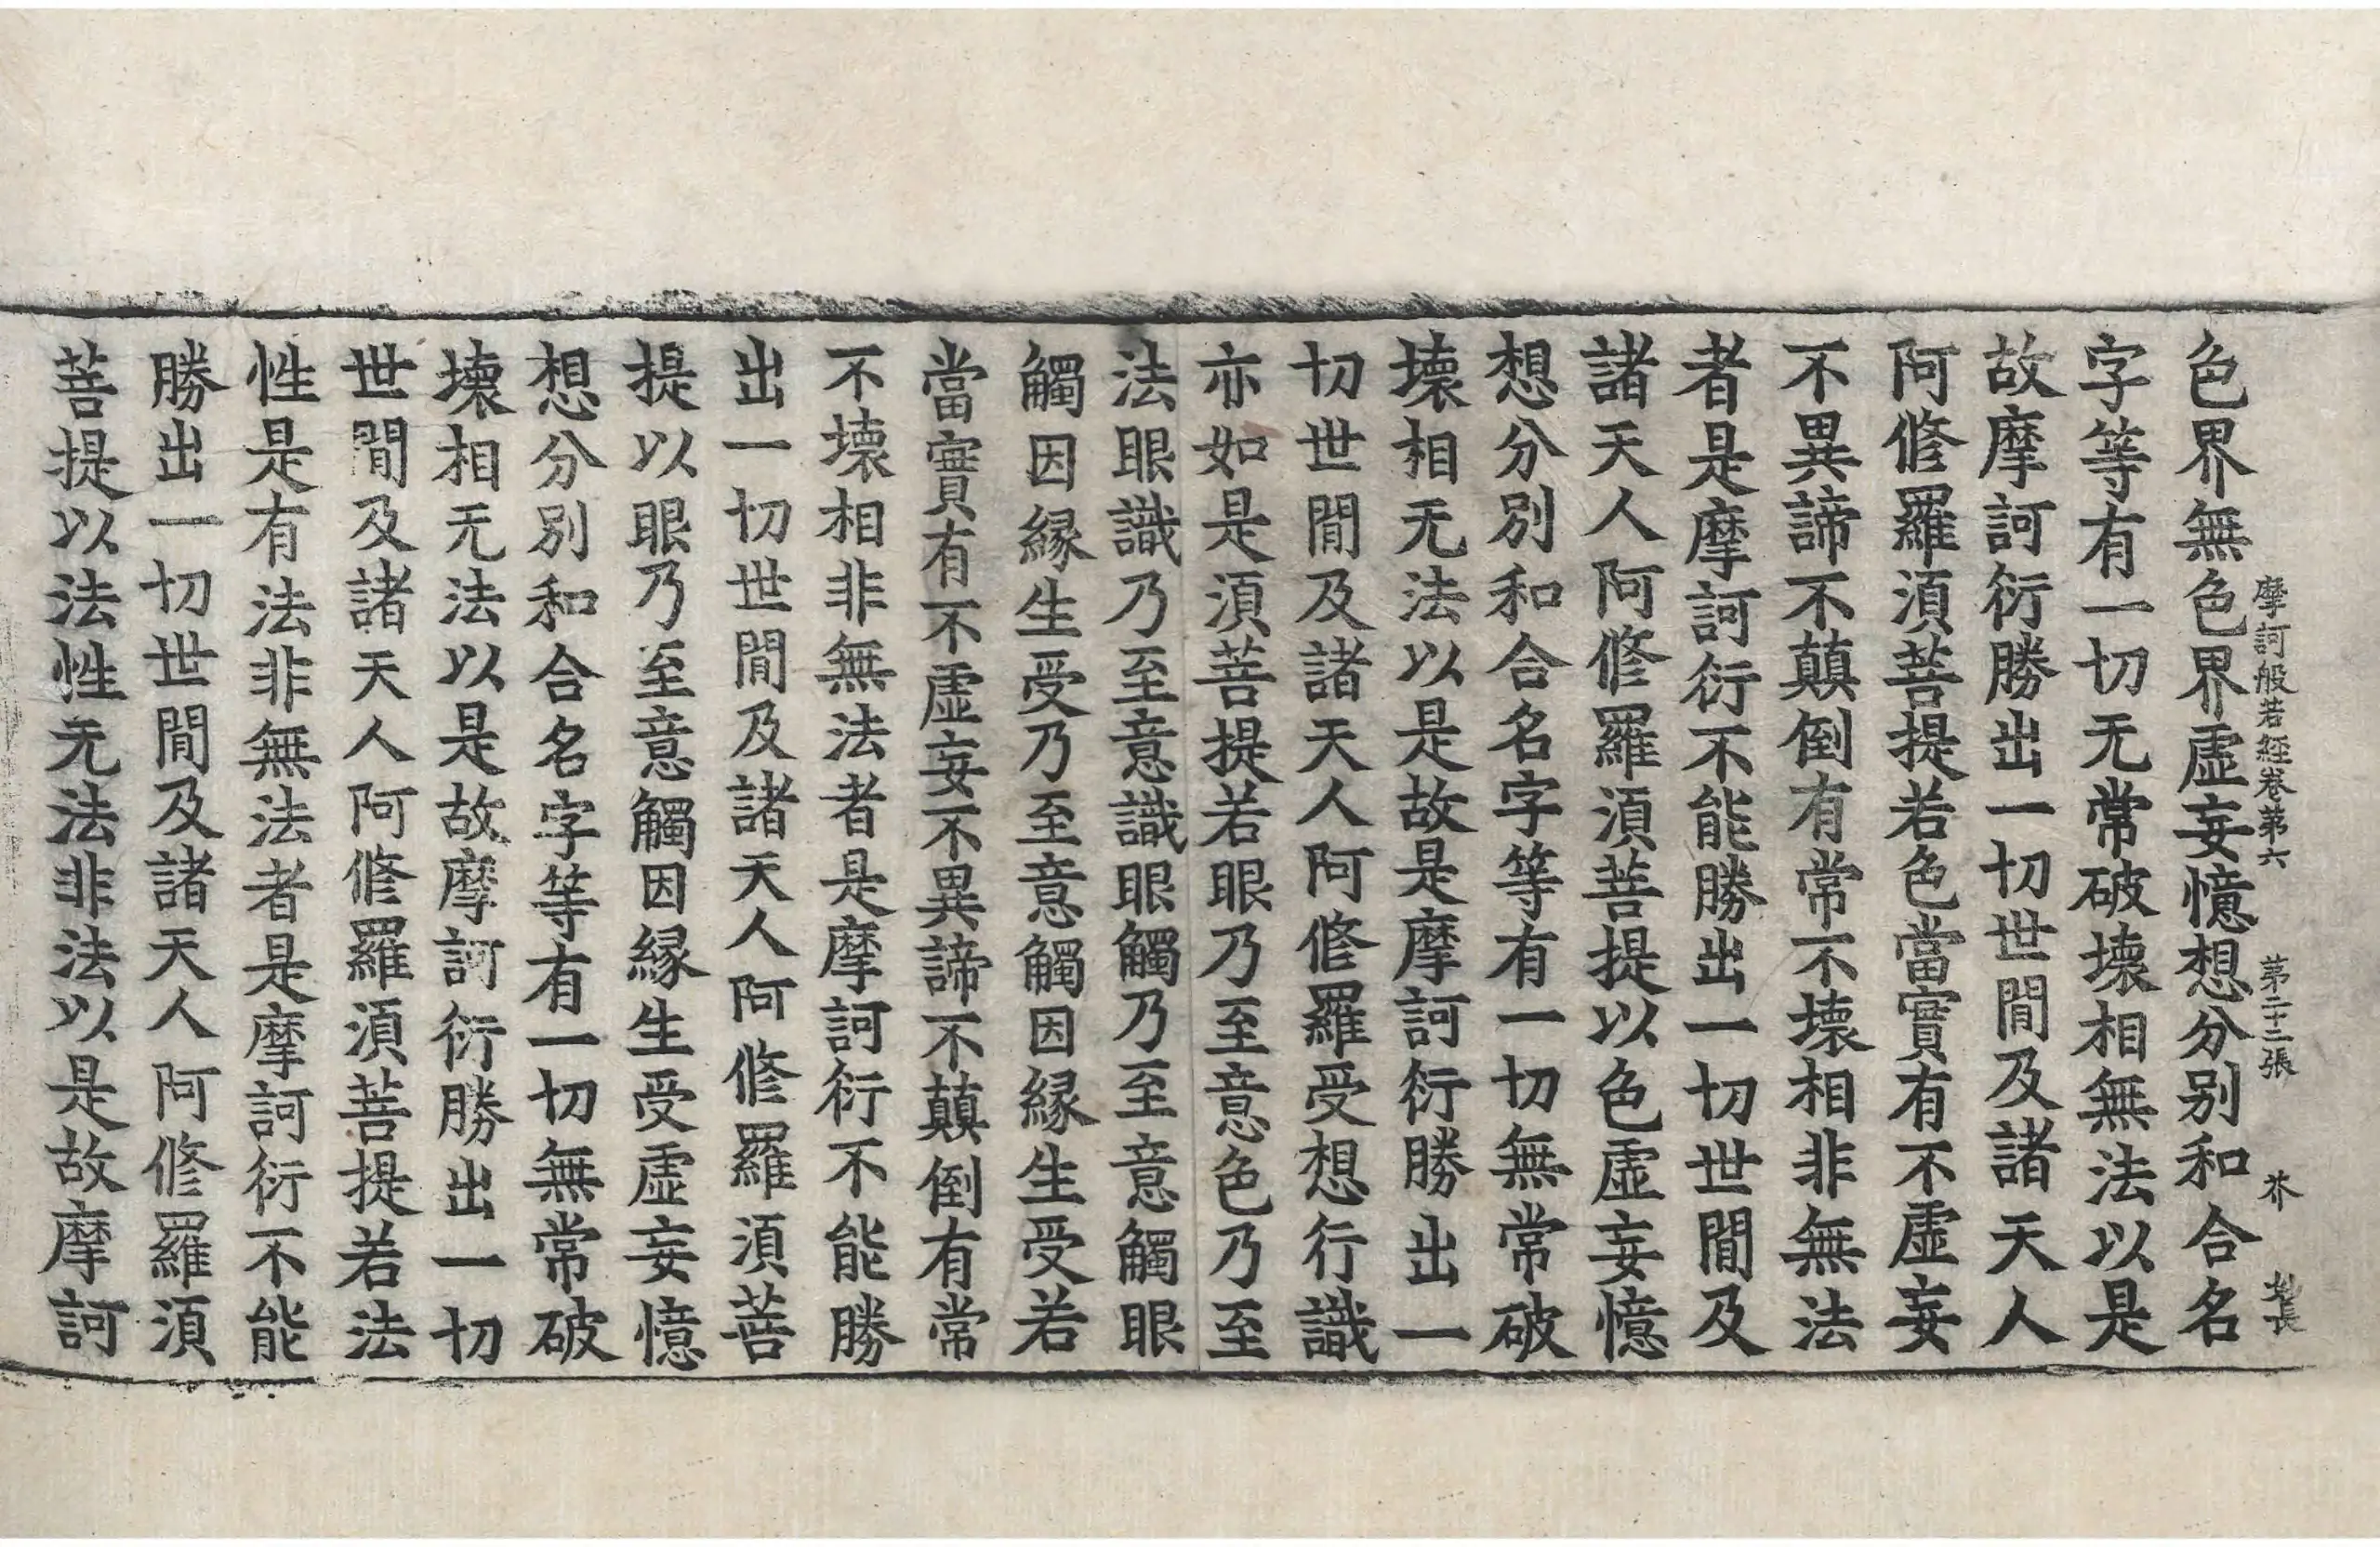 摩訶般若經卷第六 第二十三張 芥
色界無色界虛妄憶想分別和合名
字等有一切无常破壞相無法以是
故摩訶衍勝出一切世閒及諸天人
阿修羅須菩提若色當實有不虛妄
不異諦不顛倒有常不壞相非無法
者是摩訶衍不能勝出一切世閒及
諸天人阿修羅須菩提以色虛妄憶
想分別和合名字等有一切無常破
壞相无法以是故是摩訶衍勝出一
切世閒及諸天人阿修羅受想行識
亦如是須菩提若眼乃至意色乃至
法眼識乃至意識眼觸乃至意觸眼
觸因緣生受乃至意觸因緣生受若
當實有不虛妄不異諦不顛倒有常
不壞相非無法者是摩訶衍不能勝
出一切世閒及諸天人阿修羅須菩
提以眼乃至意觸因緣生受虛妄憶
想分別和合名字等有一切無常破
壞相无法以是故摩訶衍勝出一切
世閒及諸天人阿修羅須菩提若法
性是有法非無法者是摩訶衍不能
勝出一切世閒及諸天人阿修羅須
菩提以法性无法非法以是故摩訶